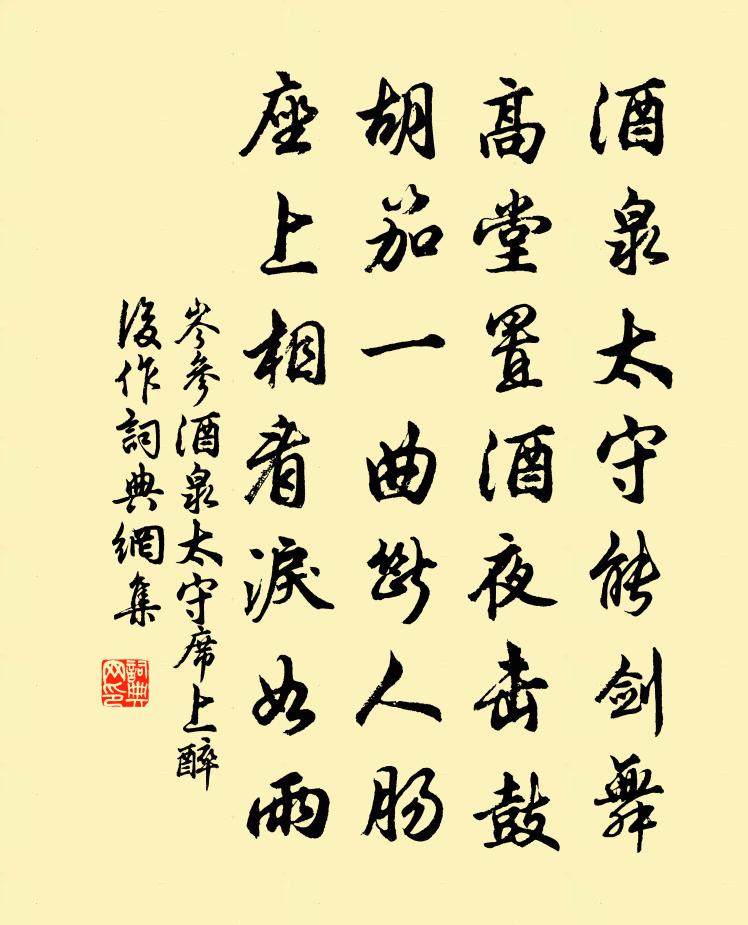 酒泉太守能剑舞
高堂置酒夜击鼓
胡笳一曲断人肠
座上相看淚如雨
岑參酒泉太守席上醉
後作詞典網集
詞典网印